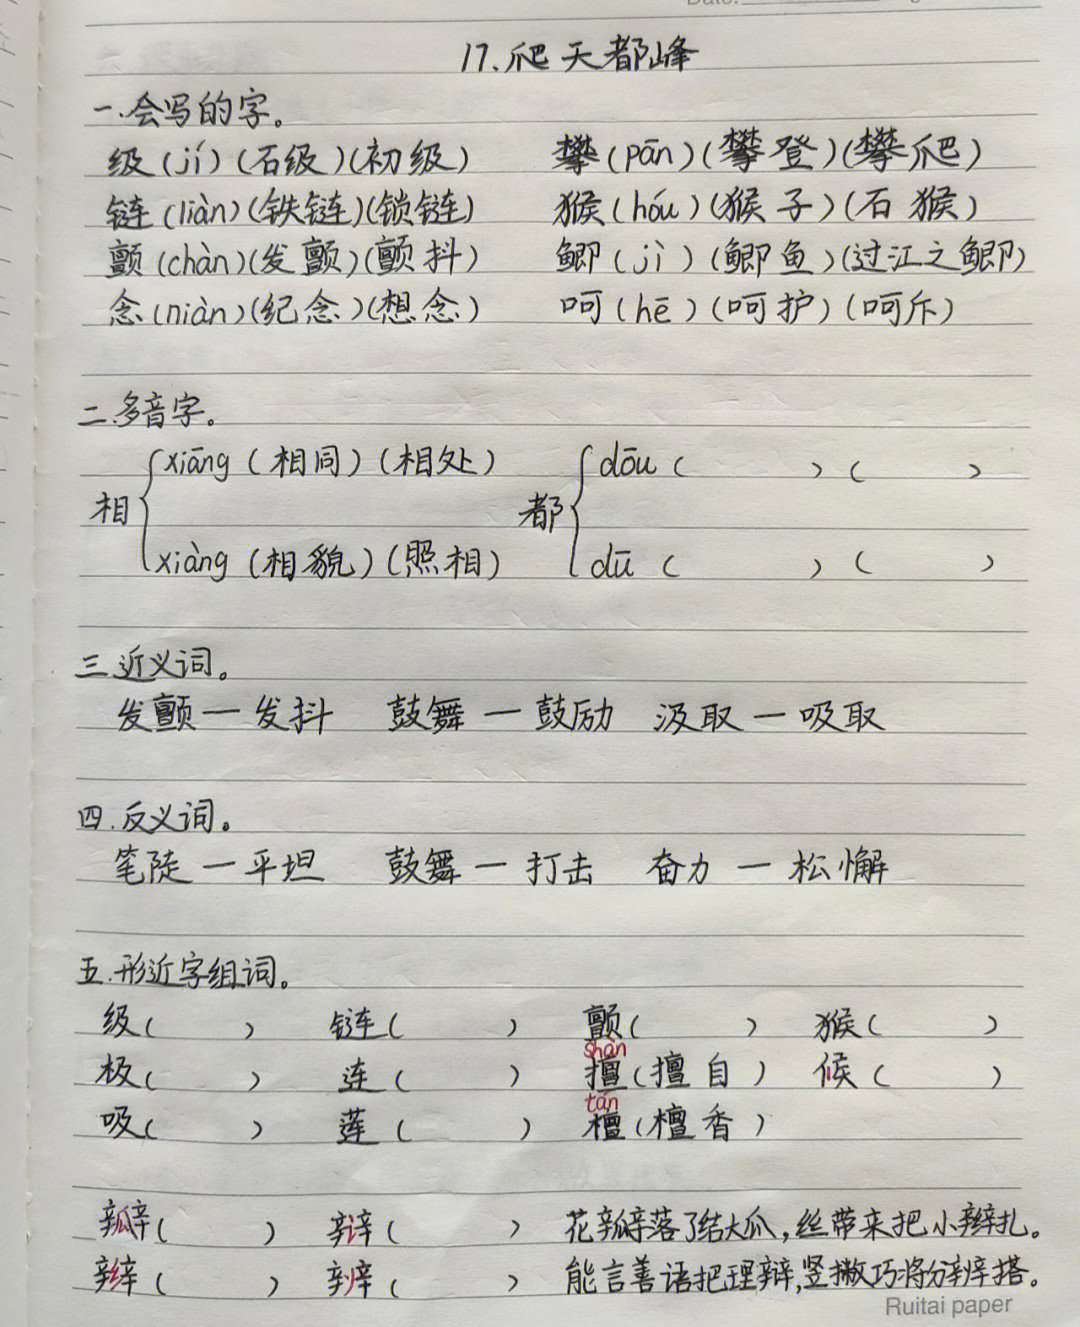 17.爬天都峰
一.会写的字。
级(jí)(石级)(初级) 攀(pān)(攀登)(攀爬)
链(liàn)(铁链)(锁链) 猴(hóu)(猴子)(石猴)
颤(chàn)(发颤)(颤抖) 鲫(jì)(鲫鱼)(过江之鲫)
念(niàn)(纪念)(想念) 呵(hē)(呵护)(呵斥)
二.多音字。
xiāng(相同)(相处) dōu( )( )
相 都
xiàng(相貌)(照相) dū( )( )
三.近义词。
发颤—发抖 鼓舞—鼓励 汲取—吸取
四.反义词。
笔陡—平坦 鼓舞—打击 奋力—松懈
五.形近字组词。
级( ) 链( ) 颤( ) 猴( )
shàn
极( ) 连( ) 擅(擅自) 候( )
tán
吸( ) 莲( ) 檀(檀香)
瓣( ) 辩( ) 花瓣落了结大瓜,丝带来把小辫扎。
辫( ) 辨( ) 能言善语把理辩,竖撇巧将分辨搭。
Ruitai paper